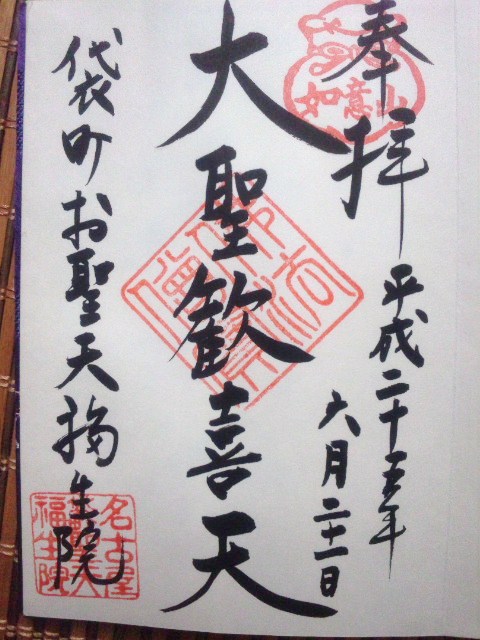 奉拝
如意山
平成二十五年
六月二十一日
大聖歓喜天
袋町お聖天福生院
名古屋
福生院